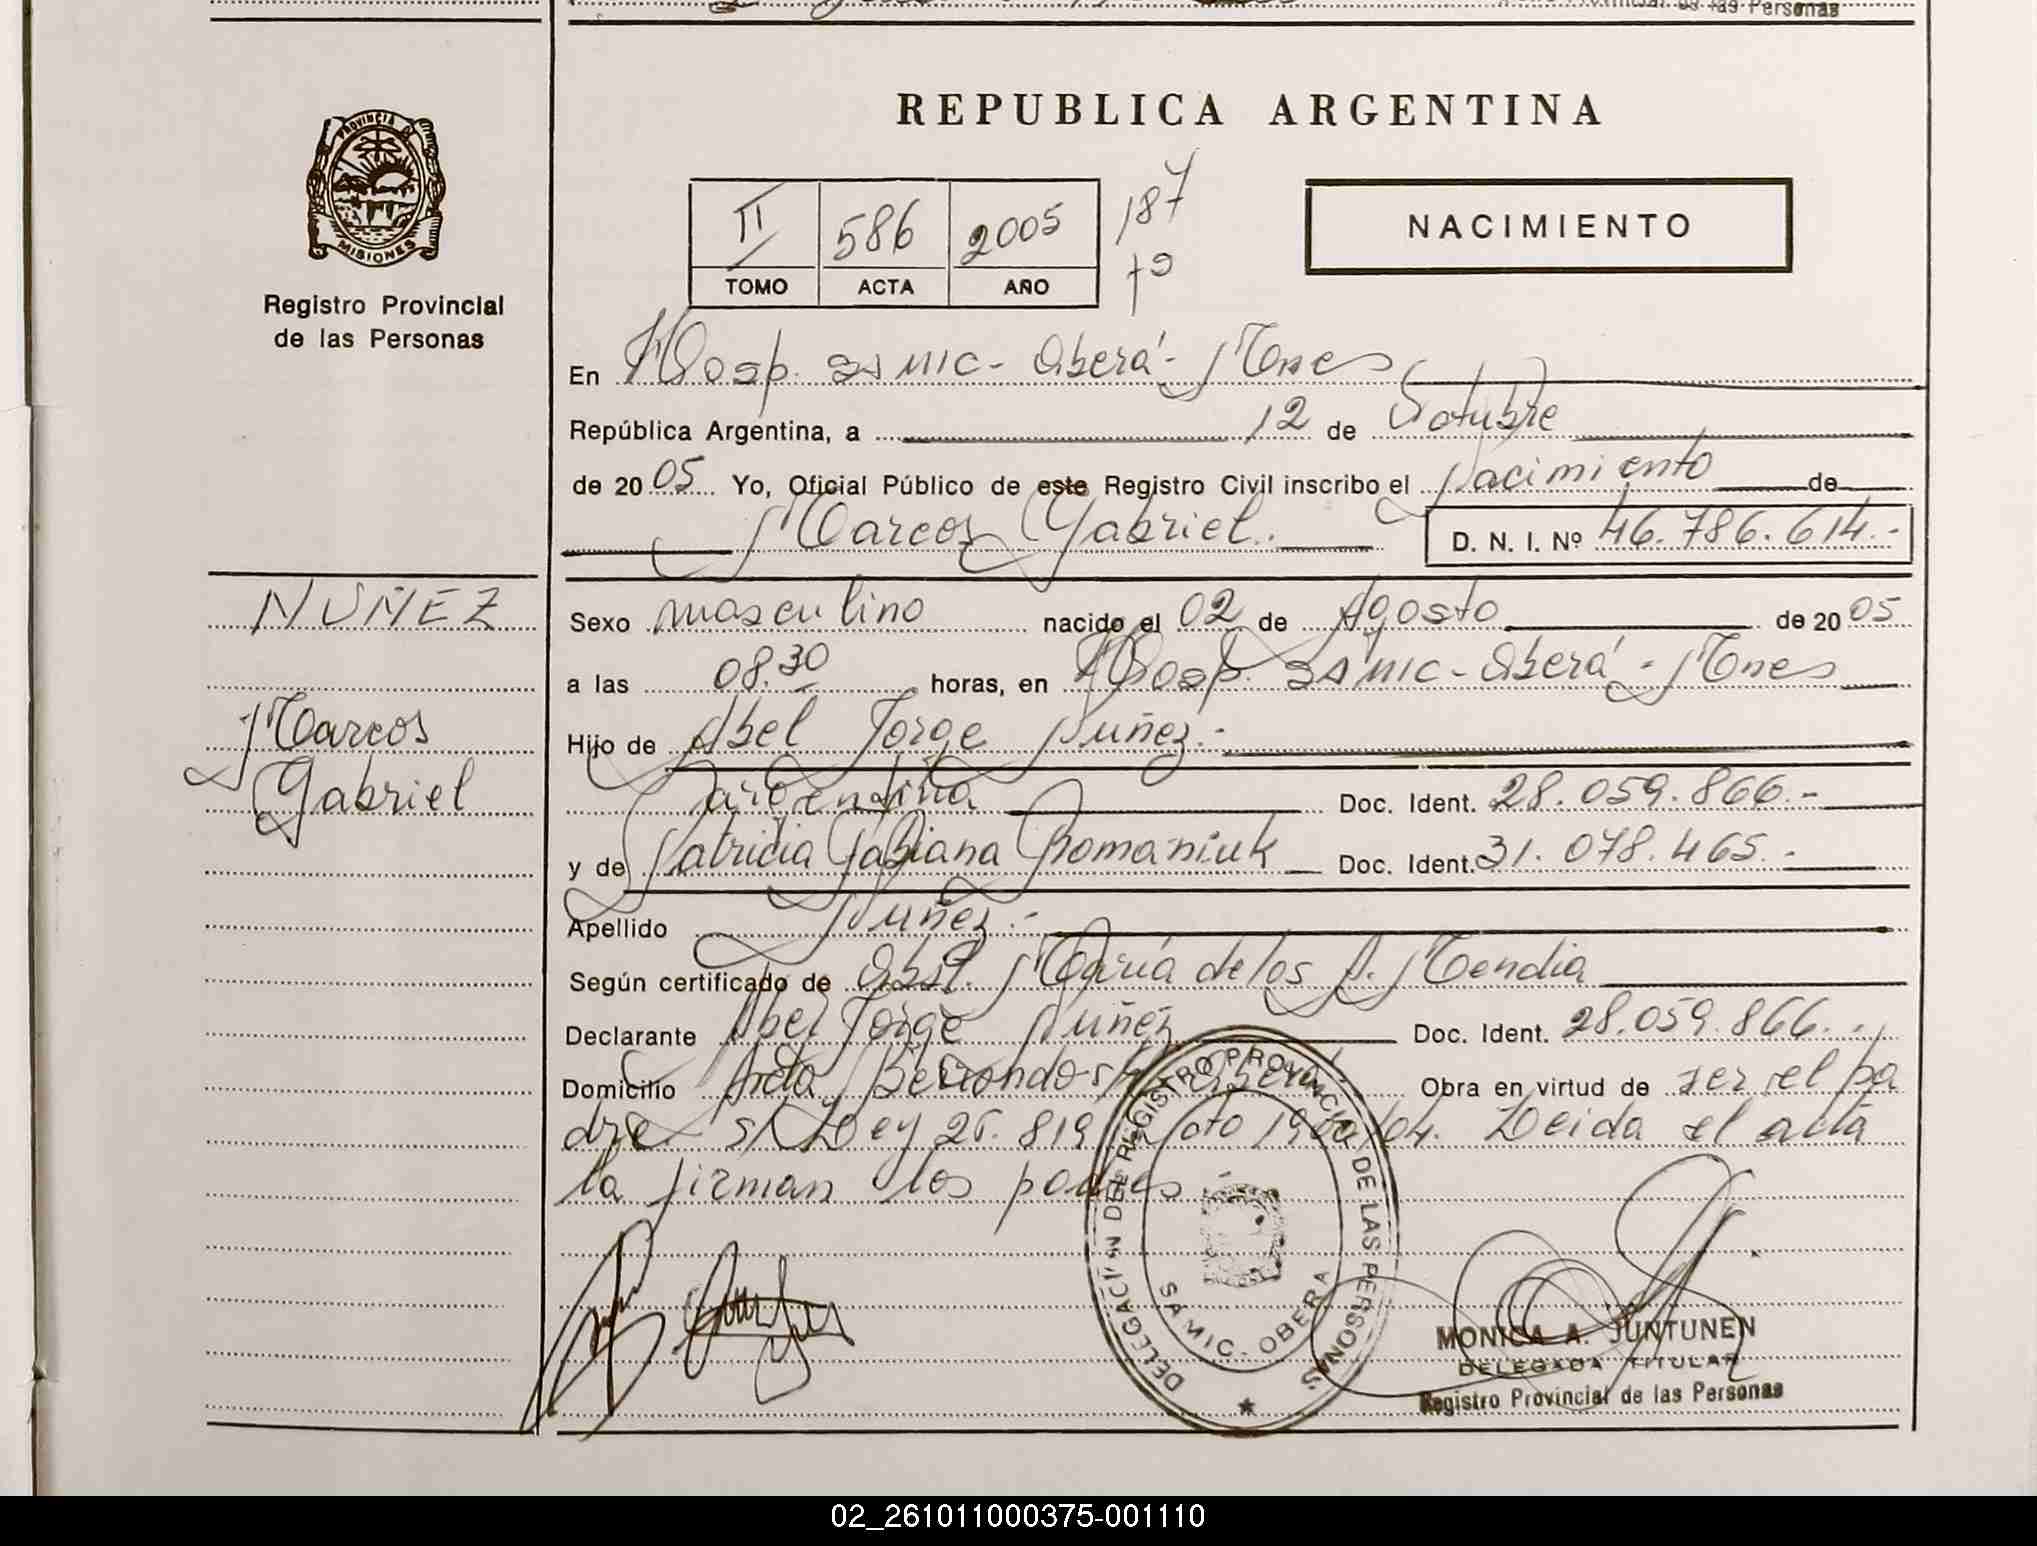 de las Personas
REPUBLICA ARGENTINA
PROVINCIA DE
MISIONES
Registro Provincial
de las Personas
II 586 2005 187
TOMO ACTA AÑO
NACIMIENTO
En Hosp. SAMIC - Oberá - Mnes
República Argentina, a 12 de Octubre
de 2005 Yo, Oficial Público de este Registro Civil inscribo el Nacimiento de
Marcos Gabriel.
D. N. I. Nº 46.786.614.-
NUÑEZ
Marcos
Gabriel
Sexo masculino nacido el 02 de Agosto de 2005
a las 08.30 horas, en Hosp. SAMIC - Oberá - Mnes
Hijo de Abel Jorge Nuñez.-
argentina Doc. Ident. 28.059.866.-
y de Patricia Fabiana Romaniuk Doc. Ident. 31.078.465.-
Apellido Nuñez.-
Según certificado de Obst. María de los A. Mendia
Declarante Abel Jorge Nuñez Doc. Ident. 28.059.866.-
Domicilio Oberá Obra en virtud de ser el pa
dre s/ Ley 26.819 Leida el acta
la firman los padres
DELEGACION DEL REGISTRO PROVINCIAL DE LAS PERSONAS
SAMIC - OBERA
MONICA A. JUNTUNEN
DELEGADA TITULAR
Registro Provincial de las Personas
02_261011000375-001110